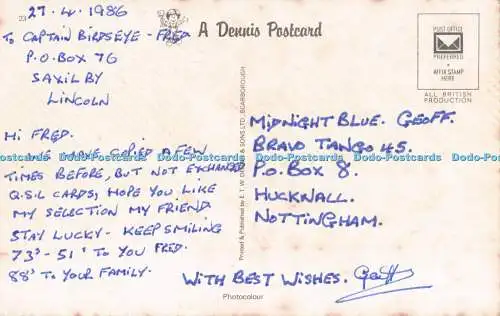 27.4.1986
TO CAPTAIN BIRDSEYE - FRED
P.O.BOX 76
SAXILBY
LINCOLN
HI FRED.
WE HAVE COPIED A FEW
TIMES BEFORE, BUT NOT EXCHANGED
Q.S.L CARDS, HOPE YOU LIKE
MY SELECTION MY FRIEND
STAY LUCKY - KEEP SMILING
73's - 51's TO YOU FRED.
88's TO YOUR FAMILY.
A Dennis Postcard
POST OFFICE
PREFERRED
AFFIX STAMP
HERE
ALL BRITISH
PRODUCTION
MIDNIGHT BLUE. GEOFF.
BRAVO TANGO 45.
P.O. BOX 8.
HUCKNALL.
NOTTINGHAM.
WITH BEST WISHES. Geoff
Photocolour
Printed & Published by E.T.W. DENNIS & SONS LTD., SCARBOROUGH
Dodo-Postcards Dodo-Postcards Dodo-Postcards Dodo-Postcards Dodo-Postcards